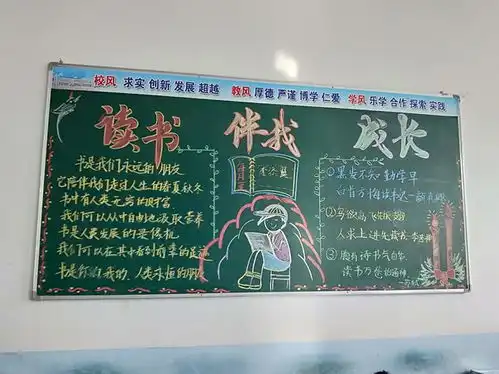 校风 求实 创新 发展 超越 教风 厚德 严谨 博学 仁爱 学风 乐学 合作 探索 实践
读书 伴我 成长
书是我们永远的朋友
它陪伴我们走过人生的春夏秋冬
书中有人类无穷的财富
我们可以从中自由地汲取营养
书是人类发展的
我们可以在其中看到前辈的足迹
书是你我的、人类永恒的朋友
①黑发不知勤学早
白首方悔读书迟
②
人求上进先读书
③腹有诗书气自华
读书万卷始通神